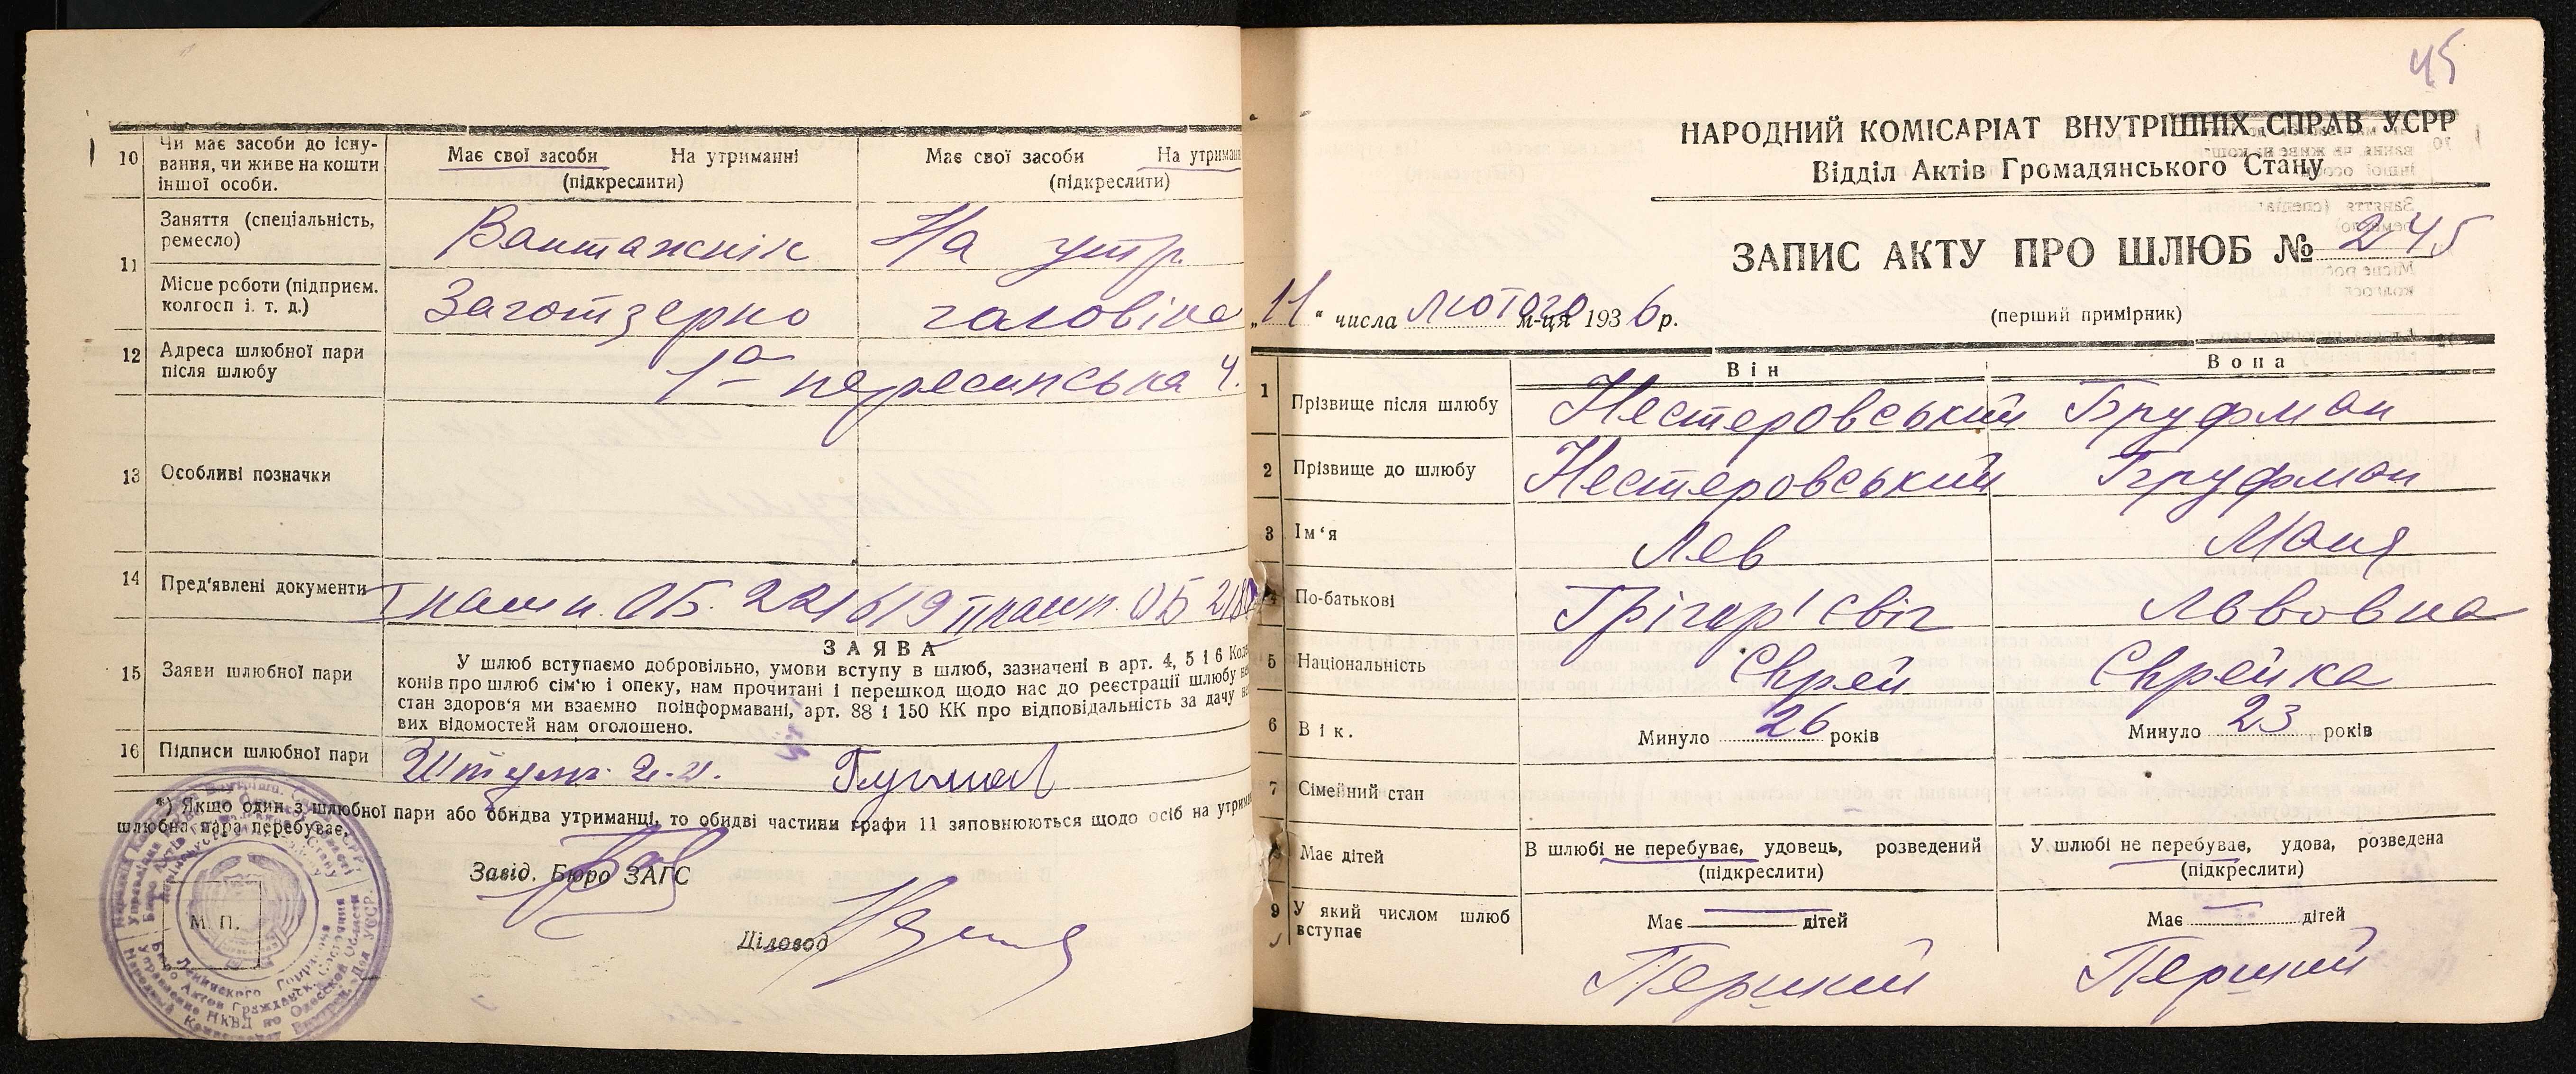 10
Чи має засоби до існу-
вання, чи живе на кошти
іншої особи.
Має свої засоби На утриманні
(підкреслити)
Має свої засоби На утриман
(підкреслити)
11
Заняття (спеціальність,
ремесло)
Вантажнік
На утр.
Місце роботи (підприєм.
колгосп і. т. д.)
Заготзерно
чаловіка
12
Адреса шлюбної пари
після шлюбу
1а пересипська 4.
13
Особливі позначки
14
Пред'явлені документи
I пашп. ОБ. 221619 II пашп. ОБ
15
Заяви шлюбної пари
ЗАЯВА
У шлюб вступаємо добровільно, умови вступу в шлюб, зазначені в арт. 4, 5 і 6 Код
конів про шлюб сім'ю і опеку, нам прочитані і перешкод щодо нас до реєстрації шлюбу не
стан здоров'я ми взаємно поінформавані, арт. 88 і 150 КК про відповідальність за дачу не
вих відомостей нам оголошено.
16
Підписи шлюбної пари
*) Якщо один з шлюбної пари або обидва утриманці, то обидві частини графи 11 заповнюються щодо осіб на утрим
шлюбна пара перебуває.
Завід. Бюро ЗАГС
Діловод
М. П.
45
НАРОДНИЙ КОМІСАРІАТ ВНУТРІШНІХ СПРАВ УСРР
Відділ Актів Громадянського Стану
ЗАПИС АКТУ ПРО ШЛЮБ № 245
„11“ числа лютого м-ця 1936 р.
(перший примірник)
Він
Вона
1 Прізвище після шлюбу Нестеровський Бруфман
2 Прізвище до шлюбу Нестеровський Бруфман
3 Ім'я Лев Маня
4 По-батькові Грігор'євіч Львовна
5 Національність Єврей Єврейка
6 Вік. Минуло 26 років Минуло 23 років
7 Сімейний стан
8 Має дітей
В шлюбі не перебуває, удовець, розведений
(підкреслити)
У шлюбі не перебуває, удова, розведена
(підкреслити)
9 У який числом шлюб
вступає
Має — дітей
Має — дітей
Перший
Перший